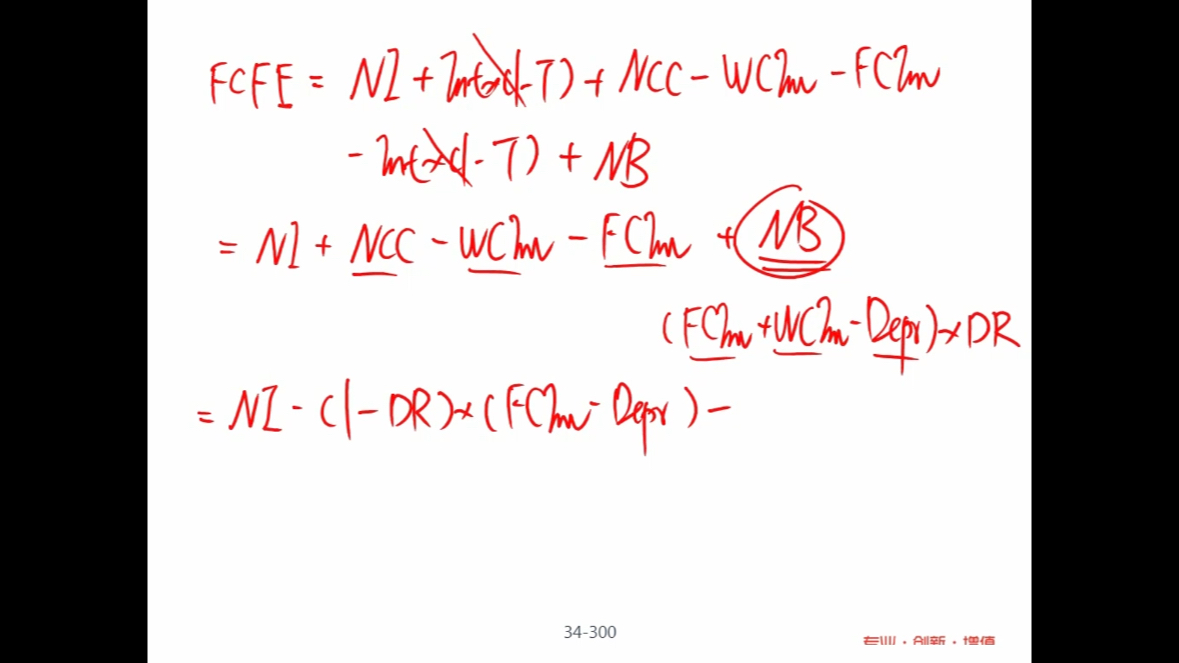 FCFE = NI + Int(×(1-T) + NCC - WCInv - FCInv
- Int(×(1-T) + NB
= NI + NCC - WCInv - FCInv + NB
(FCInv + WCInv - Depr) × DR
= NI - (1 - DR) × (FCInv - Depr) -
34-300
专业·创新·增值